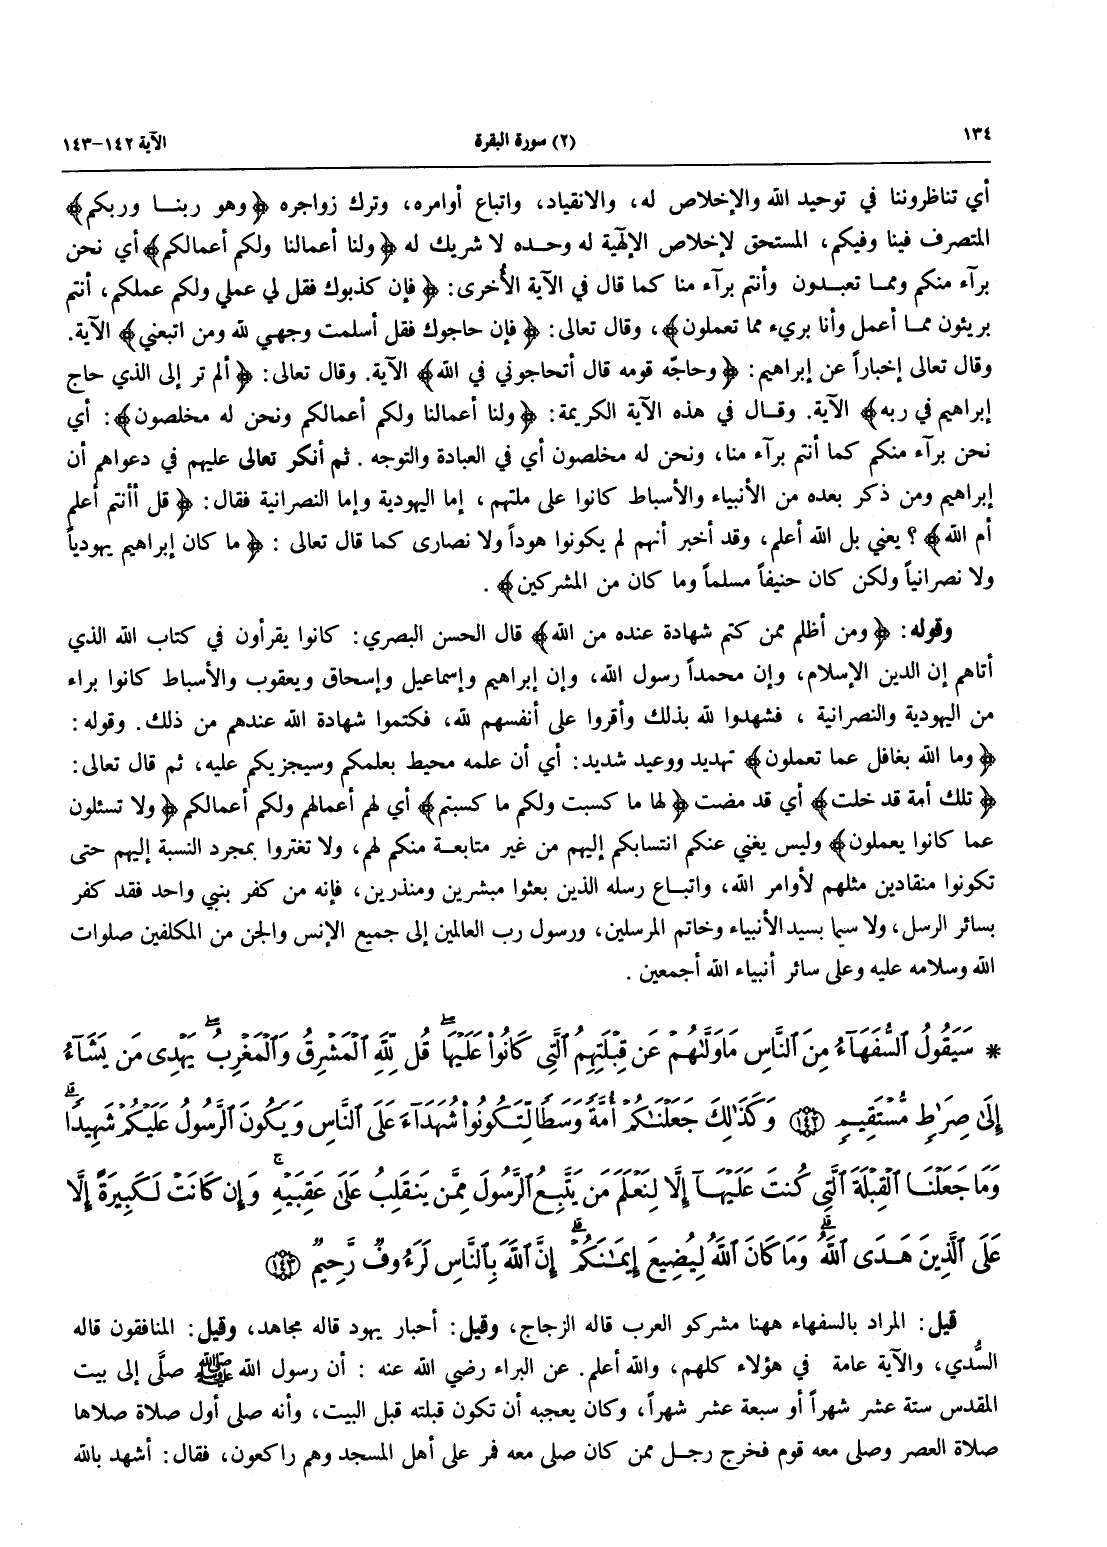 ١٣٤ (٢) سورة البقرة الآية ١٤٢-١٤٣
أي تناظروننا في توحيد الله والإخلاص له، والانقياد، واتباع أوامره، وترك زواجره ﴿وهو ربنا وربكم﴾
المتصرف فينا وفيكم، المستحق لإخلاص الإلهية له وحده لا شريك له ﴿ولنا أعمالنا ولكم أعمالكم﴾ أي نحن
برآء منكم ومما تعبدون وأنتم برآء منا كما قال في الآية الأُخرى: ﴿فإن كذبوك فقل لي عملي ولكم عملكم، أنتم
بريئون مما أعمل وأنا بريء مما تعملون﴾، وقال تعالى: ﴿فإن حاجوك فقل أسلمت وجهي لله ومن اتبعني﴾ الآية.
وقال تعالى إخباراً عن إبراهيم: ﴿وحاجّه قومه قال أتحاجوني في الله﴾ الآية. وقال تعالى: ﴿ألم تر إلى الذي حاج
إبراهيم في ربه﴾ الآية. وقال في هذه الآية الكريمة: ﴿ولنا أعمالنا ولكم أعمالكم ونحن له مخلصون﴾: أي
نحن برآء منكم كما أنتم برآء منا، ونحن له مخلصون أي في العبادة والتوجه . ثم أنكر تعالى عليهم في دعواهم أن
إبراهيم ومن ذكر بعده من الأنبياء والأسباط كانوا على ملتهم، إما اليهودية وإما النصرانية فقال: ﴿قل أأنتم أعلم
أم الله﴾؟ يعني بل الله أعلم، وقد أخبر أنهم لم يكونوا هوداً ولا نصارى كما قال تعالى : ﴿ما كان إبراهيم يهودياً
ولا نصرانياً ولكن كان حنيفاً مسلماً وما كان من المشركين﴾ .
وقوله: ﴿ومن أظلم ممن كتم شهادة عنده من الله﴾ قال الحسن البصري: كانوا يقرأون في كتاب الله الذي
أتاهم إن الدين الإسلام، وإن محمداً رسول الله، وإن إبراهيم وإسماعيل وإسحاق ويعقوب والأسباط كانوا براء
من اليهودية والنصرانية ، فشهدوا لله بذلك وأقروا على أنفسهم لله، فكتموا شهادة الله عندهم من ذلك. وقوله:
﴿وما الله بغافل عما تعملون﴾ تهديد ووعيد شديد: أي أن علمه محيط بعلمكم وسيجزيكم عليه، ثم قال تعالى:
﴿تلك أمة قد خلت﴾ أي قد مضت ﴿لها ما كسبت ولكم ما كسبتم﴾ أي لهم أعمالهم ولكم أعمالكم ﴿ولا تسئلون
عما كانوا يعملون﴾ وليس يغني عنكم انتسابكم إليهم من غير متابعة منكم لهم، ولا تغتروا بمجرد النسبة إليهم حتى
تكونوا منقادين مثلهم لأوامر الله، واتباع رسله الذين بعثوا مبشرين ومنذرين، فإنه من كفر بنبي واحد فقد كفر
بسائر الرسل، ولا سيما بسيد الأنبياء وخاتم المرسلين، ورسول رب العالمين إلى جميع الإنس والجن من المكلفين صلوات
الله وسلامه عليه وعلى سائر أنبياء الله أجمعين .
* سَيَقُولُ ٱلسُّفَهَآءُ مِنَ ٱلنَّاسِ مَاوَلَّىٰهُمْ عَن قِبْلَتِهِمُ ٱلَّتِى كَانُوا۟ عَلَيْهَا ۚ قُل لِّلَّهِ ٱلْمَشْرِقُ وَٱلْمَغْرِبُ ۚ يَهْدِى مَن يَشَآءُ
إِلَىٰ صِرَٰطٍ مُّسْتَقِيمٍ ﴿١٤٢﴾ وَكَذَٰلِكَ جَعَلْنَٰكُمْ أُمَّةً وَسَطًا لِّتَكُونُوا۟ شُهَدَآءَ عَلَى ٱلنَّاسِ وَيَكُونَ ٱلرَّسُولُ عَلَيْكُمْ شَهِيدًا ۗ
وَمَا جَعَلْنَا ٱلْقِبْلَةَ ٱلَّتِى كُنتَ عَلَيْهَآ إِلَّا لِنَعْلَمَ مَن يَتَّبِعُ ٱلرَّسُولَ مِمَّن يَنقَلِبُ عَلَىٰ عَقِبَيْهِ ۚ وَإِن كَانَتْ لَكَبِيرَةً إِلَّا
عَلَى ٱلَّذِينَ هَدَى ٱللَّهُ ۗ وَمَا كَانَ ٱللَّهُ لِيُضِيعَ إِيمَٰنَكُمْ ۚ إِنَّ ٱللَّهَ بِٱلنَّاسِ لَرَءُوفٌ رَّحِيمٌ ﴿١٤٣﴾
قيل: المراد بالسفهاء ههنا مشركو العرب قاله الزجاج، وقيل: أحبار يهود قاله مجاهد، وقيل: المنافقون قاله
السُّدي، والآية عامة في هؤلاء كلهم، والله أعلم. عن البراء رضي الله عنه : أن رسول الله ﷺ صلَّى إلى بيت
المقدس ستة عشر شهراً أو سبعة عشر شهراً، وكان يعجبه أن تكون قبلته قبل البيت، وأنه صلى أول صلاة صلاها
صلاة العصر وصلى معه قوم فخرج رجل ممن كان صلى معه فمر على أهل المسجد وهم راكعون، فقال: أشهد بالله